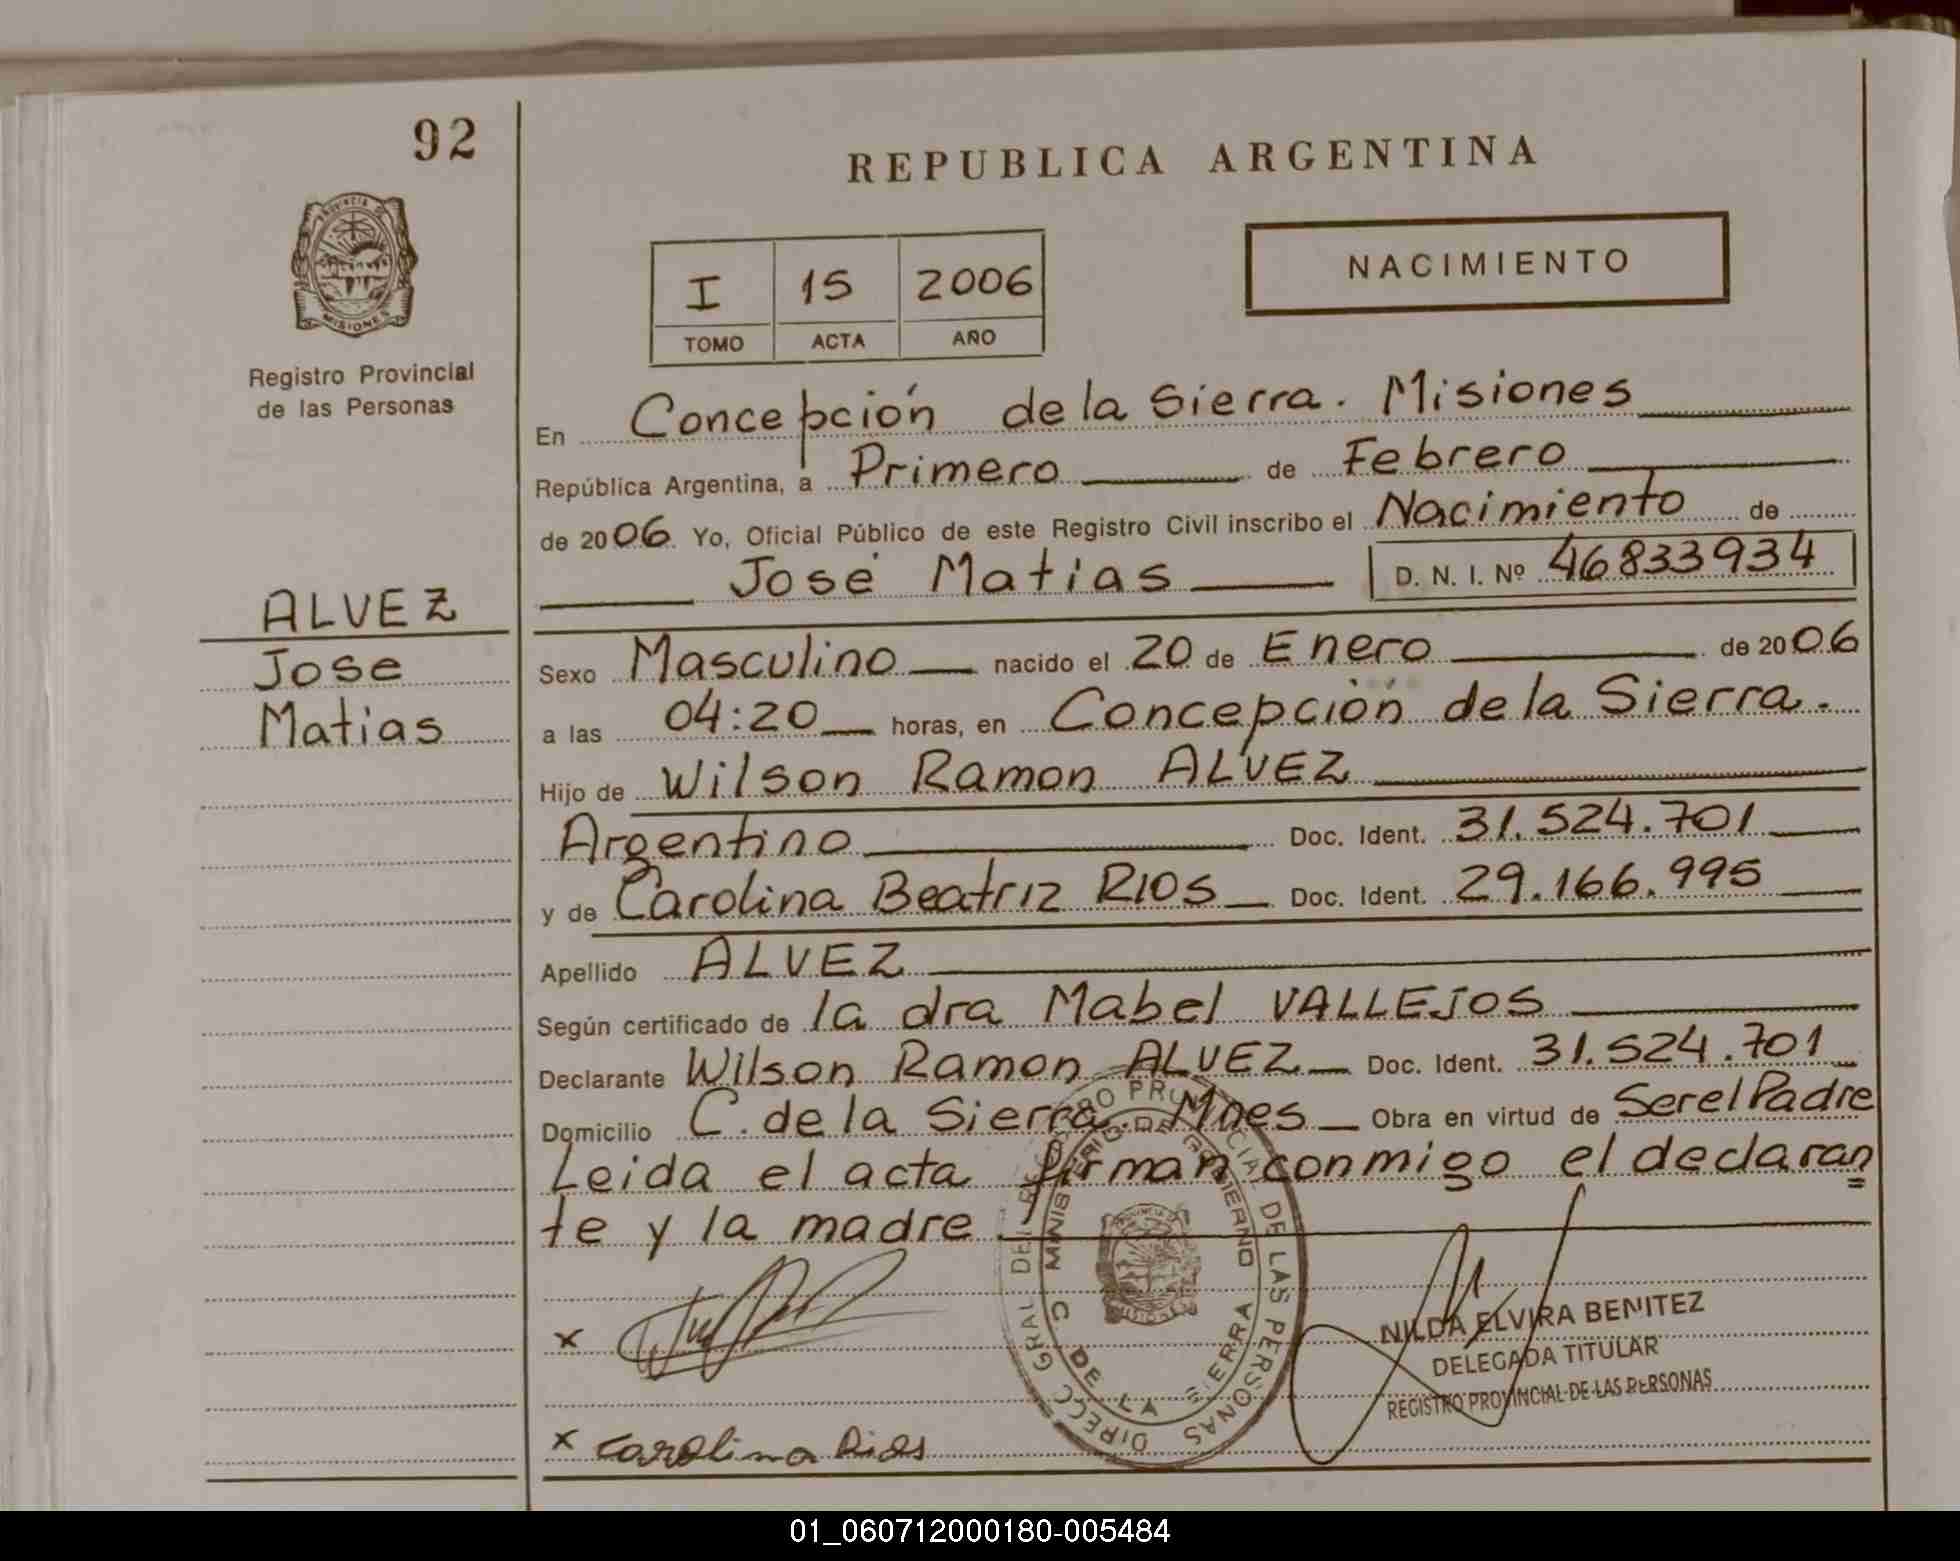 92
REPUBLICA ARGENTINA
PROVINCIA DE
MISIONES
Registro Provincial
de las Personas
I 15 2006
TOMO ACTA AÑO
NACIMIENTO
En Concepción de la Sierra. Misiones
República Argentina, a Primero de Febrero
de 2006 Yo, Oficial Público de este Registro Civil inscribo el Nacimiento de
José Matias D. N. I. Nº 46833934
ALVEZ
Jose
Matias
Sexo Masculino nacido el 20 de Enero de 2006
a las 04:20 horas, en Concepción de la Sierra.
Hijo de Wilson Ramon ALVEZ
Argentino Doc. Ident. 31.524.701
y de Carolina Beatriz RIOS Doc. Ident. 29.166.995
Apellido ALVEZ
Según certificado de la dra Mabel VALLEJOS
Declarante Wilson Ramon ALVEZ Doc. Ident. 31.524.701
Domicilio C. de la Sierra. Mnes Obra en virtud de Ser el Padre
Leida el acta firman conmigo el declaran
te y la madre
DIRECC GRAL DEL REGISTRO PROVINCIAL DE LAS PERSONAS
MINISTERIO DE GOBIERNO
C. DE LA SIERRA
NILDA ELVIRA BENITEZ
DELEGADA TITULAR
REGISTRO PROVINCIAL DE LAS PERSONAS
x
x Carolina Rios
01_060712000180-005484